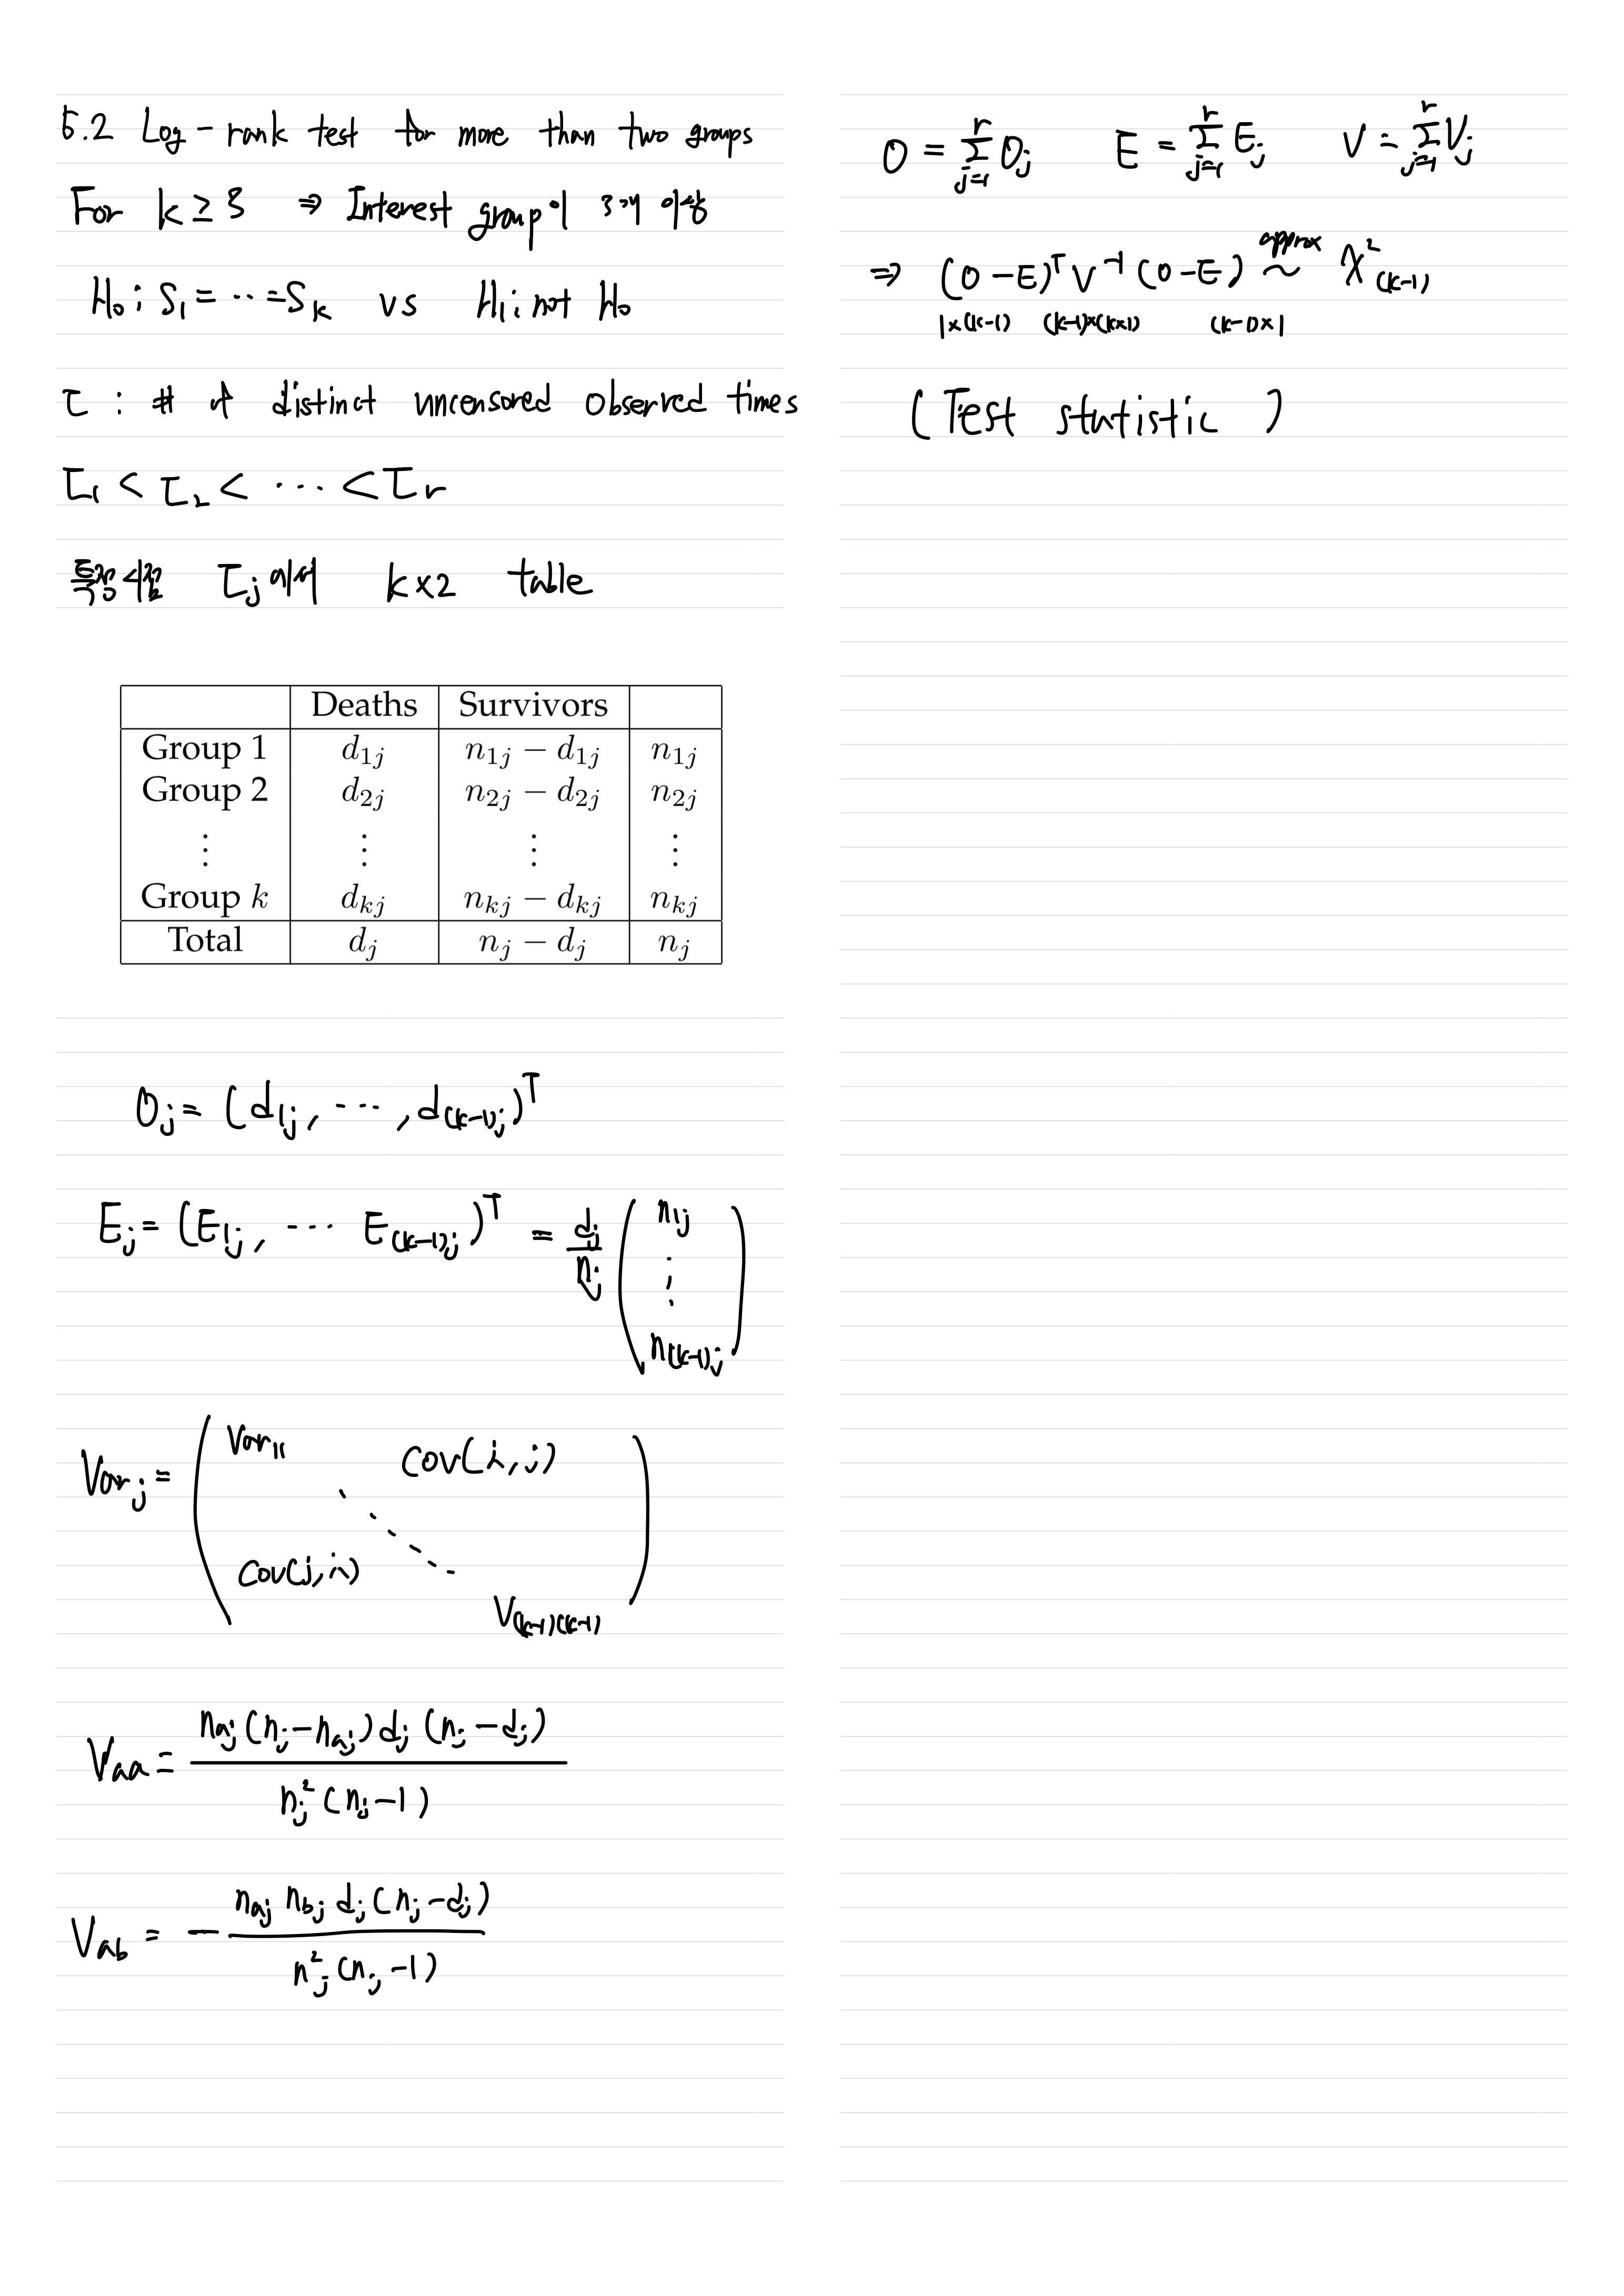 5.2 Log-rank test for more than two groups
For k ≥ 3 ⇒ Interest group이 3개 이상
H₀ : S₁ = ⋯ = Sₖ vs H₁ : not H₀
τ : # of distinct uncensored observed times
τ₁ < τ₂ < ⋯ < τᵣ
특정시점 τⱼ에서 k×2 table
Deaths Survivors
Group 1 d₁ⱼ n₁ⱼ − d₁ⱼ n₁ⱼ
Group 2 d₂ⱼ n₂ⱼ − d₂ⱼ n₂ⱼ
⋮ ⋮ ⋮ ⋮
Group k dₖⱼ nₖⱼ − dₖⱼ nₖⱼ
Total dⱼ nⱼ − dⱼ nⱼ
Oⱼ = (d₁ⱼ, ⋯, d₍ₖ₋₁₎ⱼ)ᵀ
Eⱼ = (E₁ⱼ, ⋯ E₍ₖ₋₁₎ⱼ)ᵀ = dⱼ/nⱼ (n₁ⱼ ⋮ n₍ₖ₋₁₎ⱼ)
Varⱼ = ( Var₁₁ cov(i,j)
⋱
cov(j,i) V₍ₖ₋₁₎₍ₖ₋₁₎ )
Vaa = nₐⱼ(nⱼ − nₐⱼ)dⱼ(nⱼ − dⱼ) / nⱼ²(nⱼ − 1)
Vab = − nₐⱼ n_bj dⱼ(nⱼ − dⱼ) / n²ⱼ(nⱼ − 1)
O = Σⱼ₌₁ʳ Oⱼ E = Σⱼ₌₁ʳ Eⱼ V = Σⱼ₌₁ʳ Vⱼ
⇒ (O − E)ᵀ V⁻¹ (O − E) approx ~ χ²₍ₖ₋₁₎
1×(k−1) (k−1)×(k×1) (k−1)×1
(Test statistic)